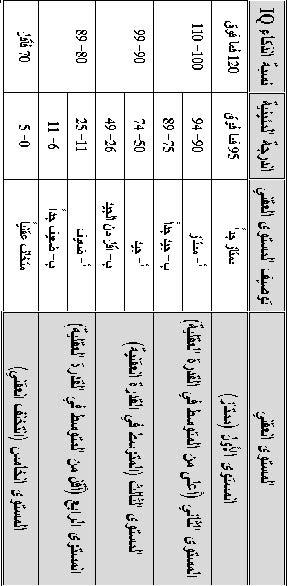 المستوى العقلي	توصيف المستوى العقلي	الدرجة المئينية	نسبة الذكاء IQ
المستوى الأول (ممتاز)	ممتاز جداً	95 فما فوق	120 فما فوق
المستوى الثاني (أعلى من المتوسط في القدرة العقلية)	أ- ممتاز	90- 94	100- 110
ب- جيد جداً	75- 89
المستوى الثالث (المتوسط في القدرة العقلية)	أ- جيد	50- 74	90- 99
ب- أقل من الجيد	26- 49
المستوى الرابع (أقل من المتوسط في القدرة العقلية)	أ- ضعيف	11- 25	80- 89
ب- ضعيف جداً	6- 11
المستوى الخامس (التخلف العقلي)	متخلف عقلياً	0- 5	70 فأقل